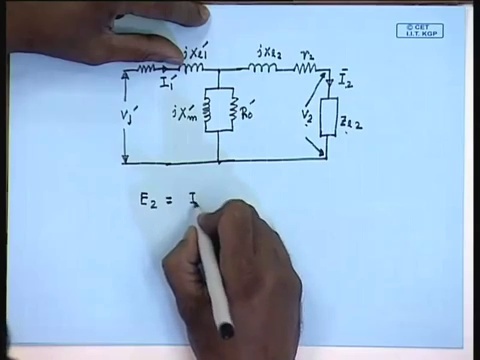 © CET
I.I.T. KGP
jXl1' jxl2 r2
I1' I2
V1' jXm' R0' V2 Zl2
E2 = I